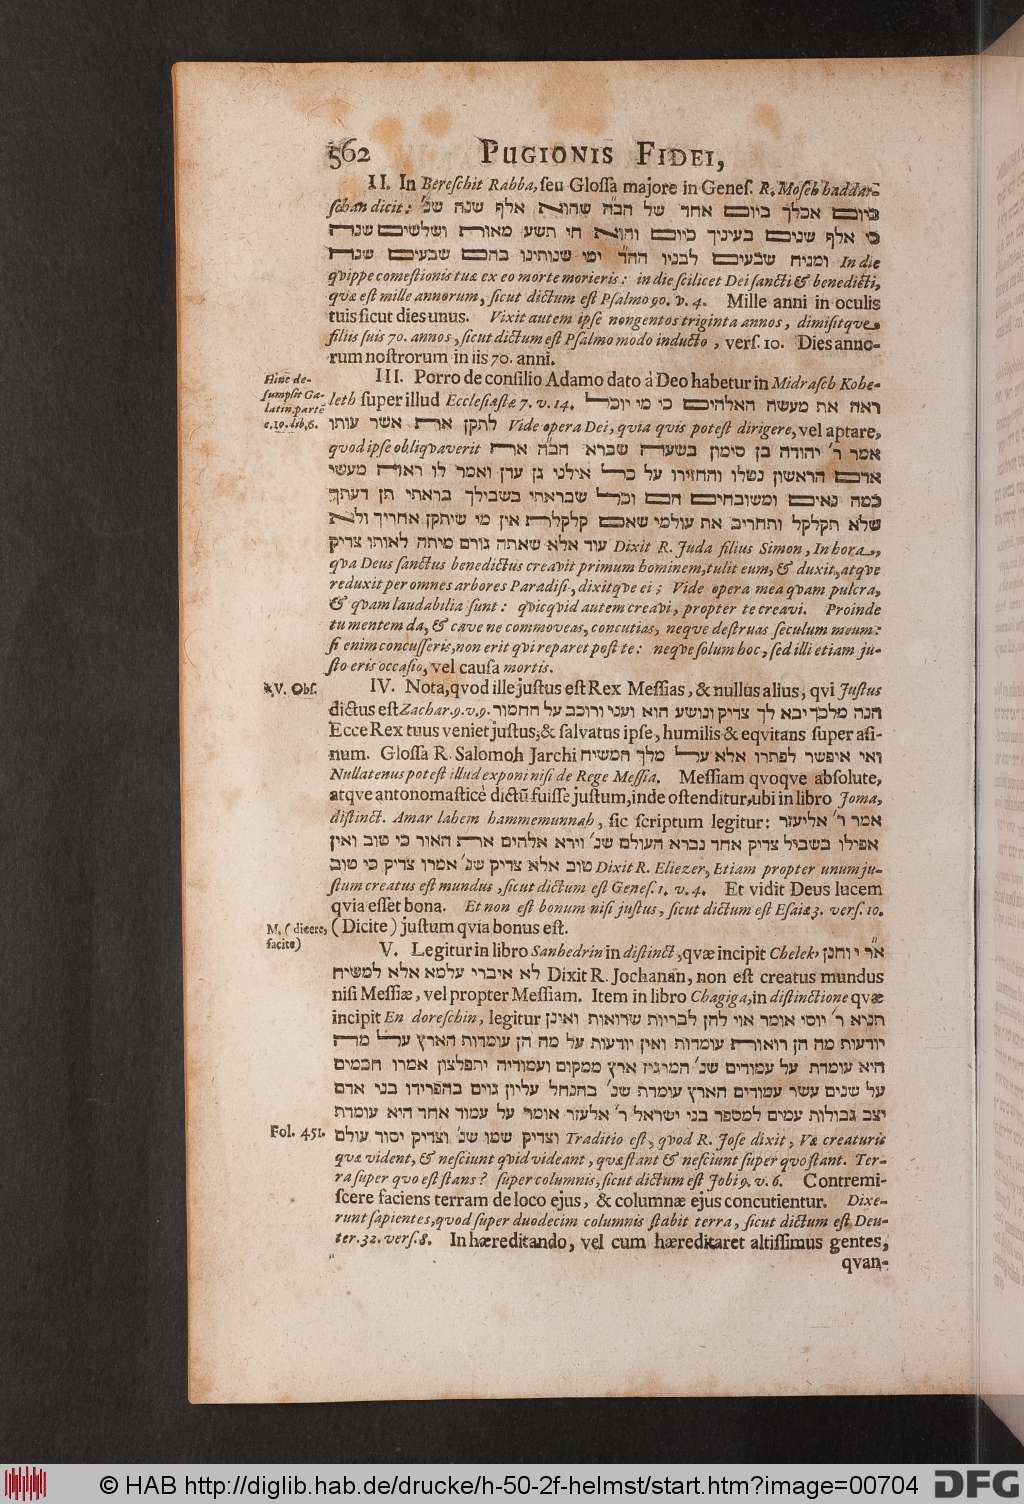 562 PUGIONIS FIDEI,
II. In Bereschit Rabba, seu Glossa majore in Genes. R. Moseh haddar-
schan dicit: ביום אכלך ביום אחד של הב״ה שהוא אלף שנה שנ׳
כי אלף שנים בעיניך כיום והוא חי תשע מאות ושלשים שנה
ומניח שבעים לבניו הה״ד ימי שנותינו בהם שבעים שנה In die
qvippe comestionis tuæ ex eo morte morieris: in die scilicet Dei sancti & benedicti,
quæ est mille annorum, sicut dictum est Psalmo 90. v. 4. Mille anni in oculis
tuis sicut dies unus. Vixit autem ipse nongentos triginta annos, dimisitqve
filiis suis 70. annos, sicut dictum est Psalmo modo inducto, vers. 10. Dies anno-
rum nostrorum in iis 70. anni.
Hinc de-
sumpsit Ga-
latin. parte
c. 10. lib. 6.
III. Porro de consilio Adamo dato à Deo habetur in Midrasch Kohe-
leth super illud Ecclesiastæ 7. v. 14. ראה את מעשה האלהים כי מי יוכל
לתקן את אשר עותו Vide opera Dei, qvia qvis potest dirigere, vel aptare,
quod ipse obliqvaverit אמר ר׳ יהודה בן סימון בשעה שברא הב״ה את
אדם הראשון נטלו והחזירו על כל אילני גן עדן ואמר לו ראה מעשי
כמה נאים ומשובחים הם וכל שבראתי בשבילך בראתי תן דעתך
שלא תקלקל ותחריב את עולמי שאם קלקלת אין מי שיתקן אחריך ולא
עוד אלא שאתה גורם מיתה לאותו צדיק Dixit R. Juda filius Simon, In hora,
qva Deus sanctus benedictus creavit primum hominem, tulit eum, & duxit, atqve
reduxit per omnes arbores Paradisi, dixitqve ei; Vide opera mea qvam pulcra,
& qvam laudabilia sunt: qvicqvid autem creavi, propter te creavi. Proinde
tu mentem da, & cave ne commoveas, concutias, neqve destruas seculum meum:
si enim concusseris, non erit qvi reparet post te: neqve solum hoc, sed illi etiam ju-
sto eris occasio, vel causa mortis.
V. Obs.
IV. Nota, qvod ille justus est Rex Messias, & nullus alius, qvi Justus
dictus est Zachar. 9. v. 9. הנה מלכך יבא לך צדיק ונושע הוא ועני ורוכב על החמור
Ecce Rex tuus veniet justus, & salvatus ipse, humilis & eqvitans super asi-
num. Glossa R. Salomoh Jarchi ואי איפשר לפתרו אלא על מלך המשיח
Nullatenus potest illud exponi nisi de Rege Messia. Messiam qvoqve absolute,
atqve antonomasticè dictũ fuisse justum, inde ostenditur, ubi in libro Joma,
distinct. Amar lahem hammemunnah, sic scriptum legitur: אמר ר׳ אליעזר
אפילו בשביל צדיק אחד נברא העולם שנ׳ וירא אלהים את האור כי טוב ואין
טוב אלא צדיק שנ׳ אמרו צדיק כי טוב Dixit R. Eliezer, Etiam propter unum ju-
stum creatus est mundus, sicut dictum est Genes. 1. v. 4. Et vidit Deus lucem
qvia esset bona. Et non est bonum nisi justus, sicut dictum est Esaiæ 3. vers. 10.
M. (dicere,
facite)
(Dicite) justum qvia bonus est.
V. Legitur in libro Sanhedrin in distinct, qvæ incipit Chelek, א״ר יוחנן
לא איברי עלמא אלא למשיח Dixit R. Jochanan, non est creatus mundus
nisi Messiæ, vel propter Messiam. Item in libro Chagiga, in distinctione qvæ
incipit En doreschin, legitur תניא ר׳ יוסי אומר אוי להן לבריות שרואות ואינן
יודעות מה הן רואות עומדות ואין יודעות על מה הן עומדות הארץ על מה
היא עומדת על עמודים שנ׳ המרגיז ארץ ממקום ועמודיה יתפלצון אמרו חכמים
על שנים עשר עמודים הארץ עומדת שנ׳ בהנחל עליון גוים בהפרידו בני אדם
יצב גבולות עמים למספר בני ישראל ר׳ אלעזר אומר על עמוד אחד היא עומדת
Fol. 451.
וצדיק שמו שנ׳ וצדיק יסוד עולם Traditio est, qvod R. Jose dixit, Væ creaturis
qvæ vident, & nesciunt qvid videant, qvæ stant & nesciunt super qvo stant. Ter-
ra super qvo est stans? super columnis, sicut dictum est Jobi 9. v. 6. Contremi-
scere faciens terram de loco ejus, & columnæ ejus concutientur. Dixe-
runt sapientes, quod super duodecim columnis stabit terra, sicut dictum est Deu-
ter. 32. vers. 8. In hæreditando, vel cum hæreditaret altissimus gentes,
qvan-
© HAB http://diglib.hab.de/drucke/h-50-2f-helmst/start.htm?image=00704 DFG